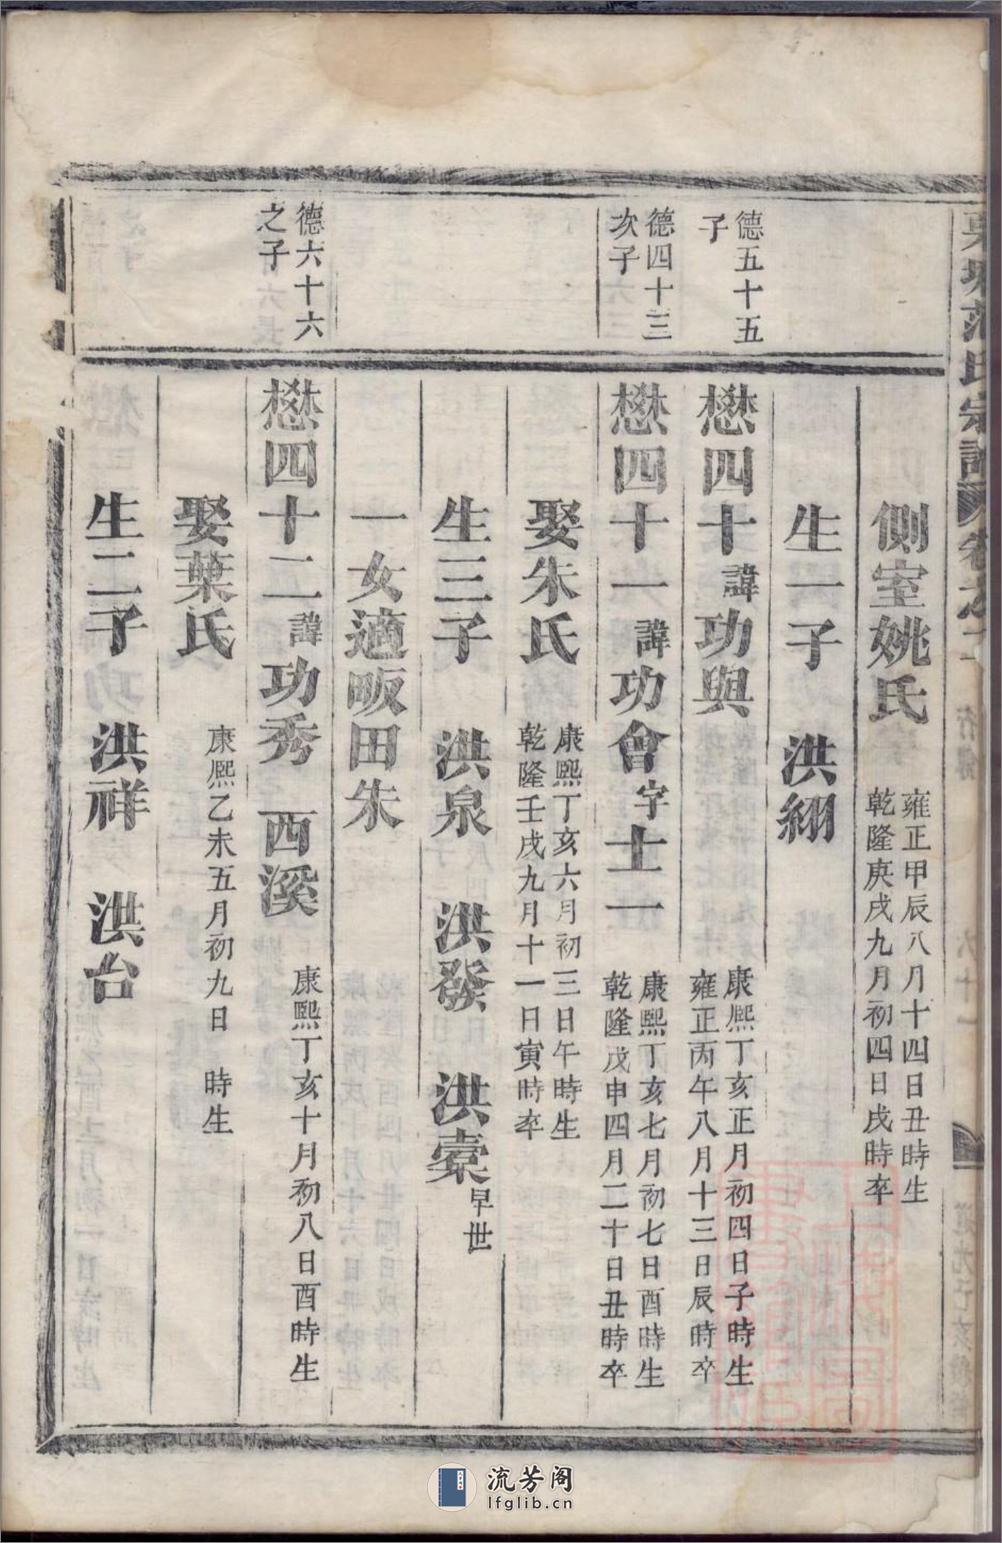 側室姚氏 雍正甲辰八月十四日丑時生
乾隆庚戌九月初四日戌時卒
生一子 洪翎
德五十五
子
懋四十諱功與 康熙丁亥正月初四日子時生
雍正丙午八月十三日辰時卒
德四十三
次子
懋四十一諱功會字士一 康熙丁亥七月初七日酉時生
乾隆戊申四月二十日丑時卒
娶朱氏 康熙丁亥六月初三日午時生
乾隆壬戌九月十一日寅時卒
生三子 洪泉 洪發 洪橐早世
一女適畈田朱
德六十六
之子
懋四十二諱功秀 西溪 康熙丁亥十月初八日酉時生
娶葉氏 康熙乙未五月初九日 時生
生二子 洪祥 洪台
流芳阁
lfglib.cn